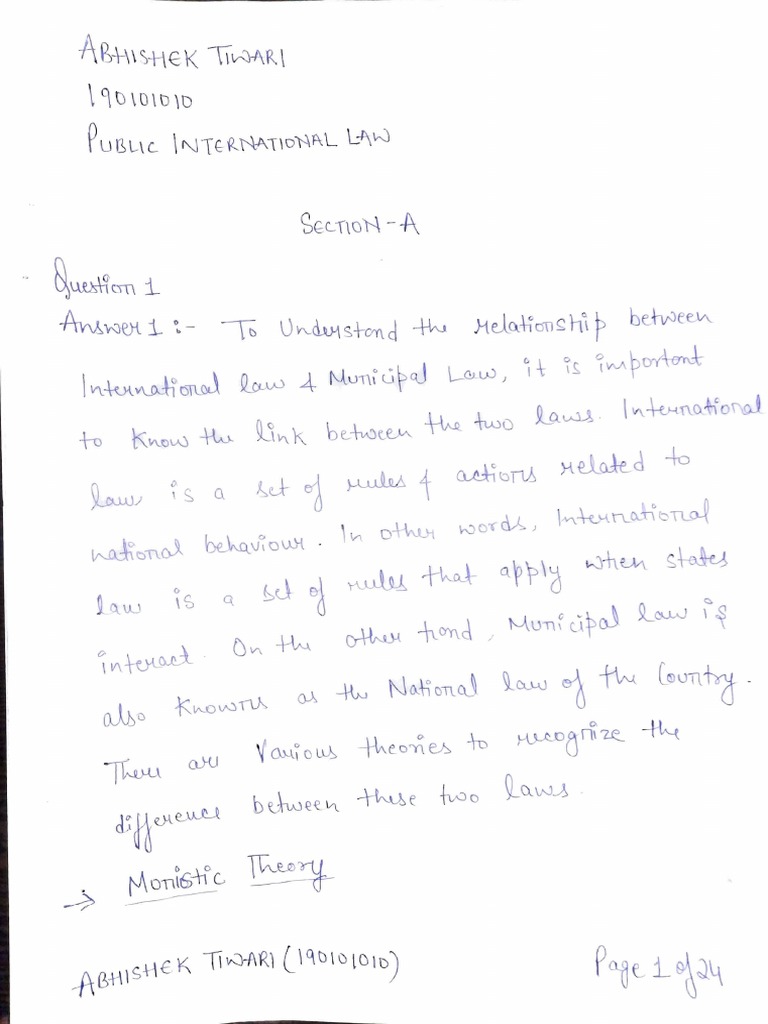 ABHISHEK TIWARI
190101010
PUBLIC INTERNATIONAL LAW
SECTION-A
Question 1
Answer 1 :- To Understand the relationship between
International law & Municipal Law, it is important
to know the link between the two laws. International
law is a set of rules & actions related to
national behaviour. In other words, International
law is a set of rules that apply when states
interact. On the other hand, Municipal law is
also knowns as the National law of the Country.
There are various theories to recognize the
difference between these two laws.
→ Monistic Theory
ABHISHEK TIWARI (190101010)
Page 1 of 24